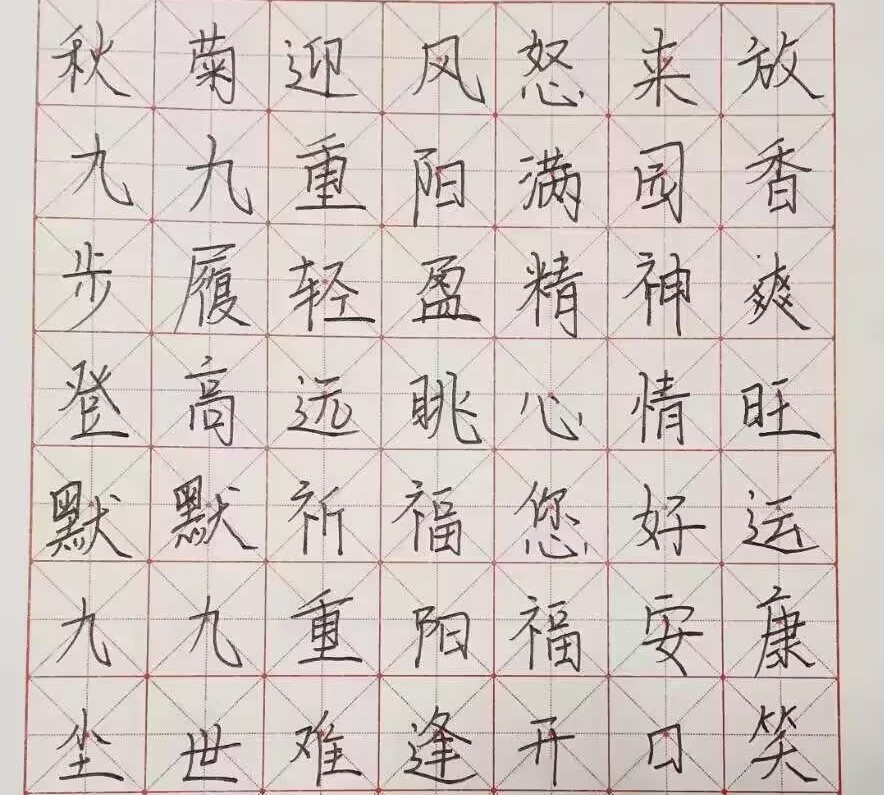 秋菊迎风怒来放
九九重阳满园香
步履轻盈精神爽
登高远眺心情旺
默默祈福您好运
九九重阳福安康
尘世难逢开口笑